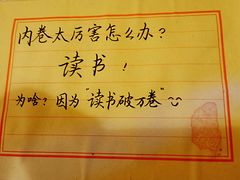 内卷太厉害怎么办？
读书！
为啥？因为“读书破万卷”